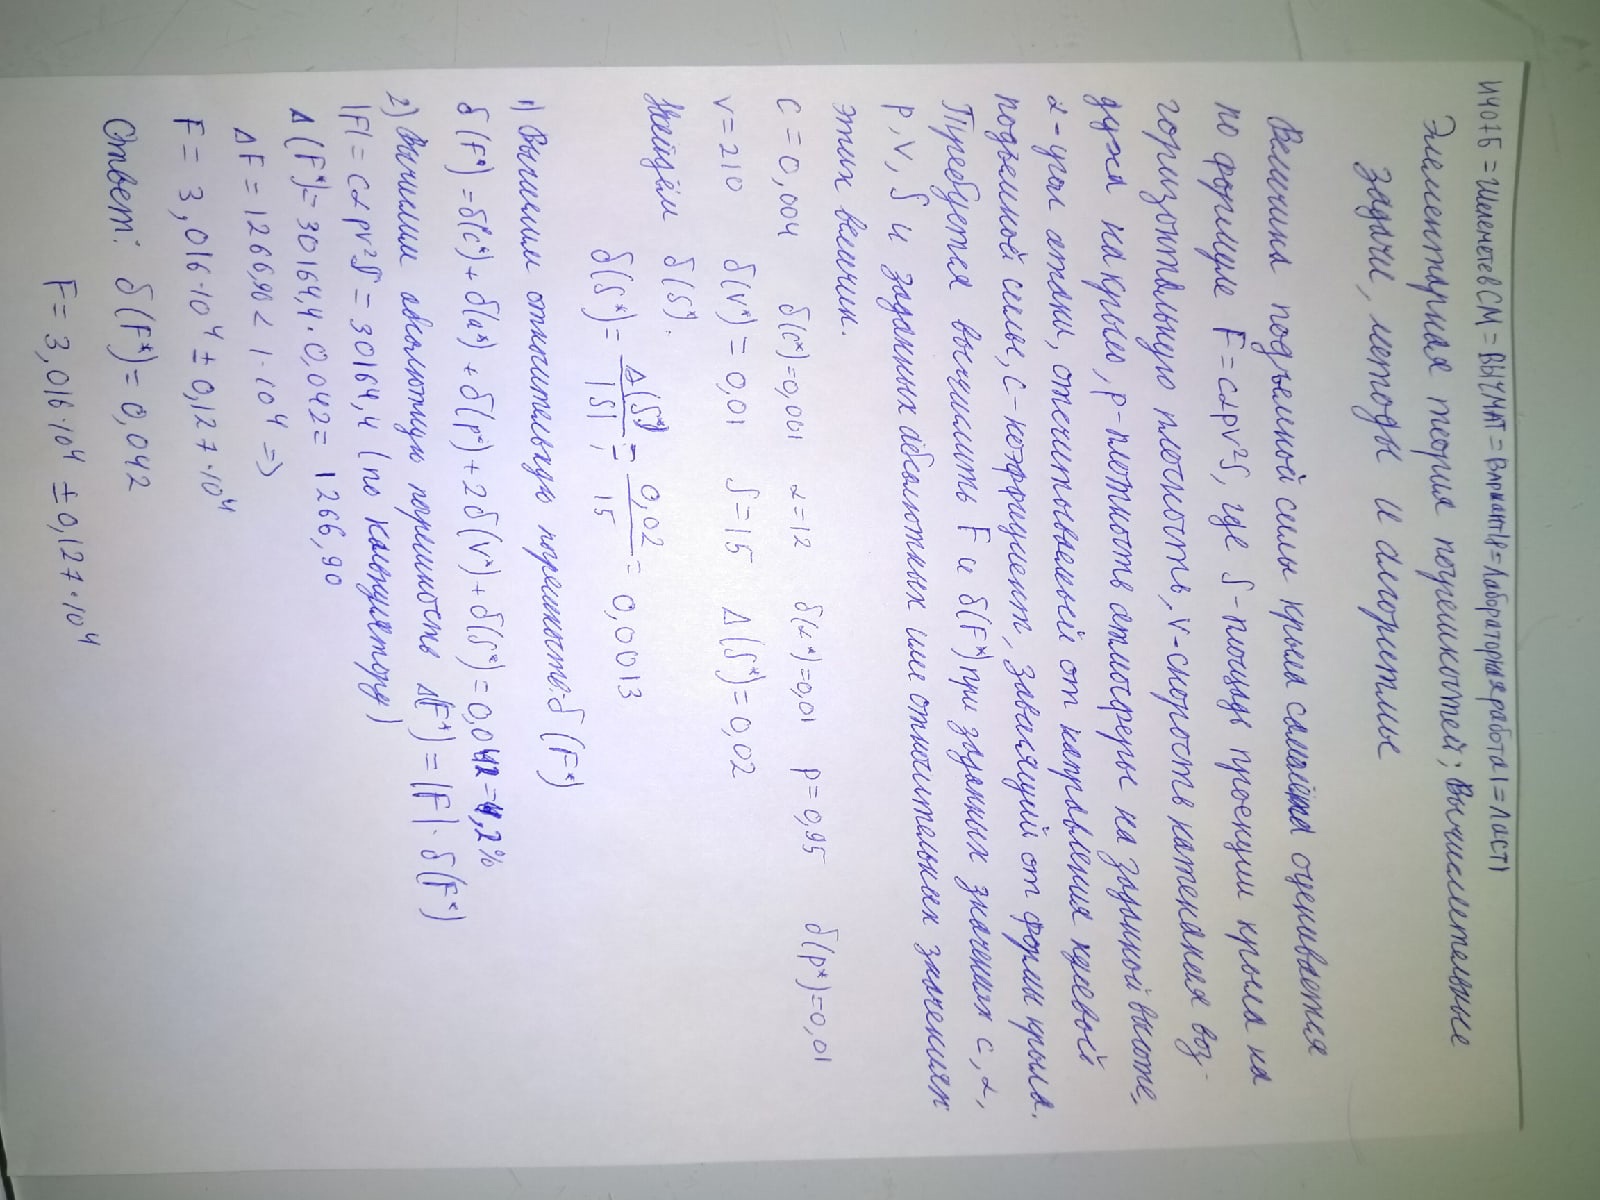 И407Б = Шелеметев СМ = ВЫЧМАТ = Вариант18 = Лабораторная работа1 = Лист1
Элементарная теория погрешностей; Вычислительные
задачи, методы и алгоритмы
Величина подъемной силы крыла самолёта оценивается
по формуле F = cαρv²S, где S-площадь проекции крыла на
горизонтальную плоскость, v-скорость натекания воз-
духа на крыло, ρ-плотность атмосферы на заданной высоте,
α-угол атаки, отсчитываемый от направления нулевый
подъемной силы, c-коэффициент, завасящий от формы крыла.
Требуется вычислить F и δ(F*) при заданных значениях c, α,
ρ, v, S и заданных абсолютных или относительных значениях
этих величин.
c = 0,004 δ(c*)=0,001 α=12 δ(α*)=0,01 ρ=0,95 δ(ρ*)=0,01
v=210 δ(v*)=0,01 S=15 Δ(S*)=0,02
Найдём δ(S*).
δ(S*)= Δ(S*)/|S| = 0,02/15 = 0,0013
1) Вычислим относительную погрешность: δ(F*)
δ(F*)=δ(c*)+δ(a*)+δ(ρ*)+2δ(v*)+δ(S*)=0,042=4,2%
2) Вычислим абсолютную погрешность Δ(F*)=|F|·δ(F*)
|F|=cαρv²S=30164,4 (по калькулятору)
Δ(F*)=30164,4·0,042=1266,90
ΔF=1266,90<1·10⁴ =>
F=3,016·10⁴±0,127·10⁴
Ответ: δ(F*)=0,042
F=3,016·10⁴±0,127·10⁴